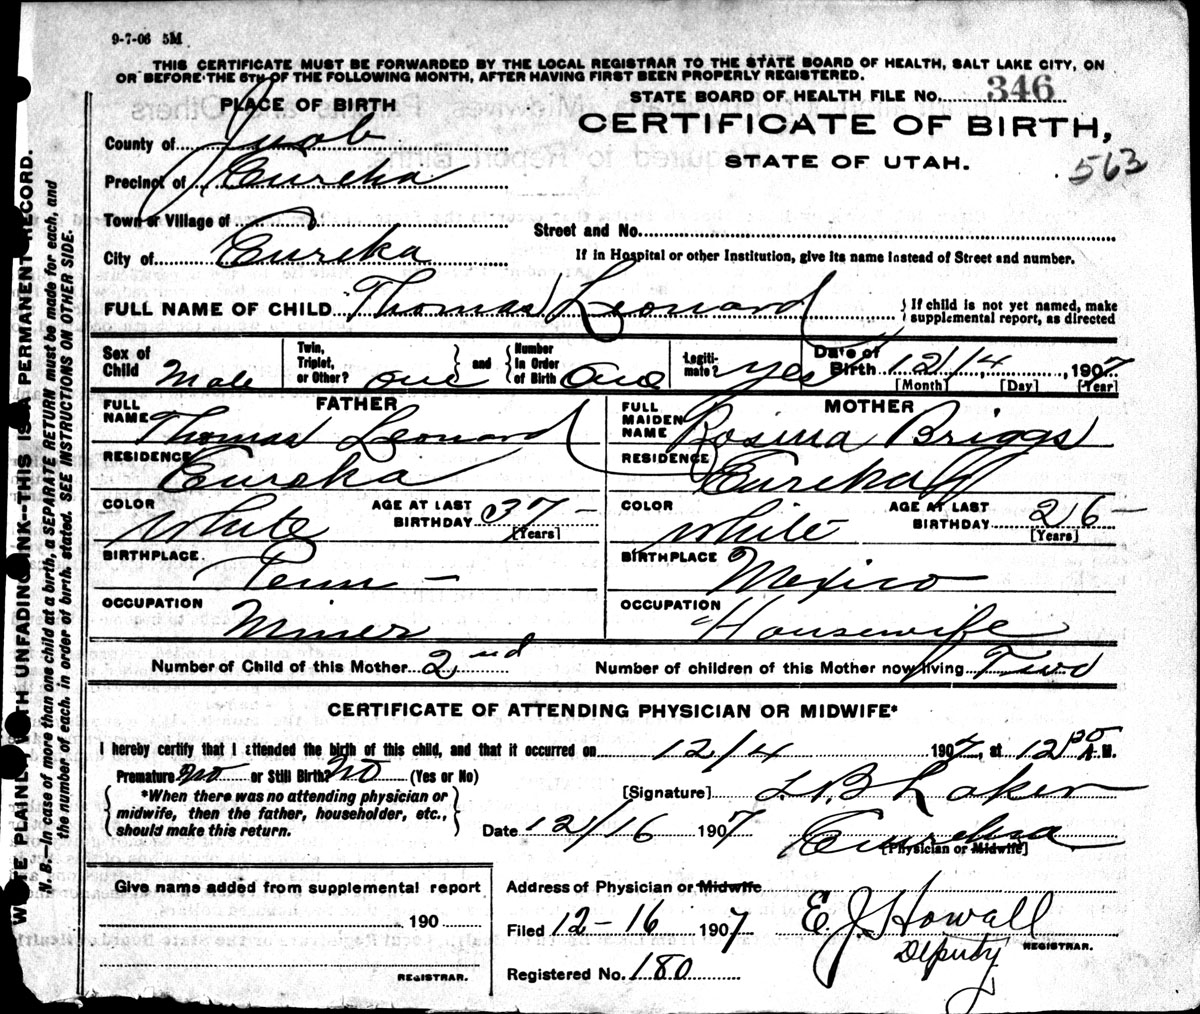 9-7-06 5M
THIS CERTIFICATE MUST BE FORWARDED BY THE LOCAL REGISTRAR TO THE STATE BOARD OF HEALTH, SALT LAKE CITY, ON
OR BEFORE THE 5TH OF THE FOLLOWING MONTH, AFTER HAVING FIRST BEEN PROPERLY REGISTERED.
STATE BOARD OF HEALTH FILE NO. 346
CERTIFICATE OF BIRTH,
STATE OF UTAH.
563
PLACE OF BIRTH
County of Juab
Precinct of Eureka
Town or Village of
City of Eureka
Street and No.
If in Hospital or other Institution, give its name instead of Street and number.
FULL NAME OF CHILD Thomas Leonard
If child is not yet named, make
supplemental report, as directed
Sex of Child Male
Twin, Triplet, or Other? one and Number In Order of Birth One
Legiti-mate? yes
Date of Birth 12/4, 1907
[Month] [Day] [Year]
FATHER
FULL NAME Thomas Leonard
RESIDENCE Eureka
COLOR White AGE AT LAST BIRTHDAY 37 -
[Years]
BIRTHPLACE. Penn -
OCCUPATION Miner
MOTHER
FULL MAIDEN NAME Rosina Briggs
RESIDENCE Eureka
COLOR White AGE AT LAST BIRTHDAY 26 -
[Years]
BIRTHPLACE Mexico
OCCUPATION Housewife
Number of Child of this Mother 2nd Number of children of this Mother now living Two
CERTIFICATE OF ATTENDING PHYSICIAN OR MIDWIFE*
I hereby certify that I attended the birth of this child, and that it occurred on 12/4 1907, at 12 A.M.
Premature? No or Still Birth? No (Yes or No)
*When there was no attending physician or
midwife, then the father, householder, etc.,
should make this return.
[Signature]
Date 12/16 1907 Eureka
[Physician or Midwife]
Give name added from supplemental report
190
REGISTRAR.
Address of Physician or Midwife
Filed 12-16 1907 E. J. Howall
Deputy REGISTRAR.
Registered No. 180
WRITE PLAINLY WITH UNFADING INK--THIS IS A PERMANENT RECORD.
N. B.—In case of more than one child at a birth, a SEPARATE RETURN must be made for each, and
the number of each, in order of birth, stated. SEE INSTRUCTIONS ON OTHER SIDE.